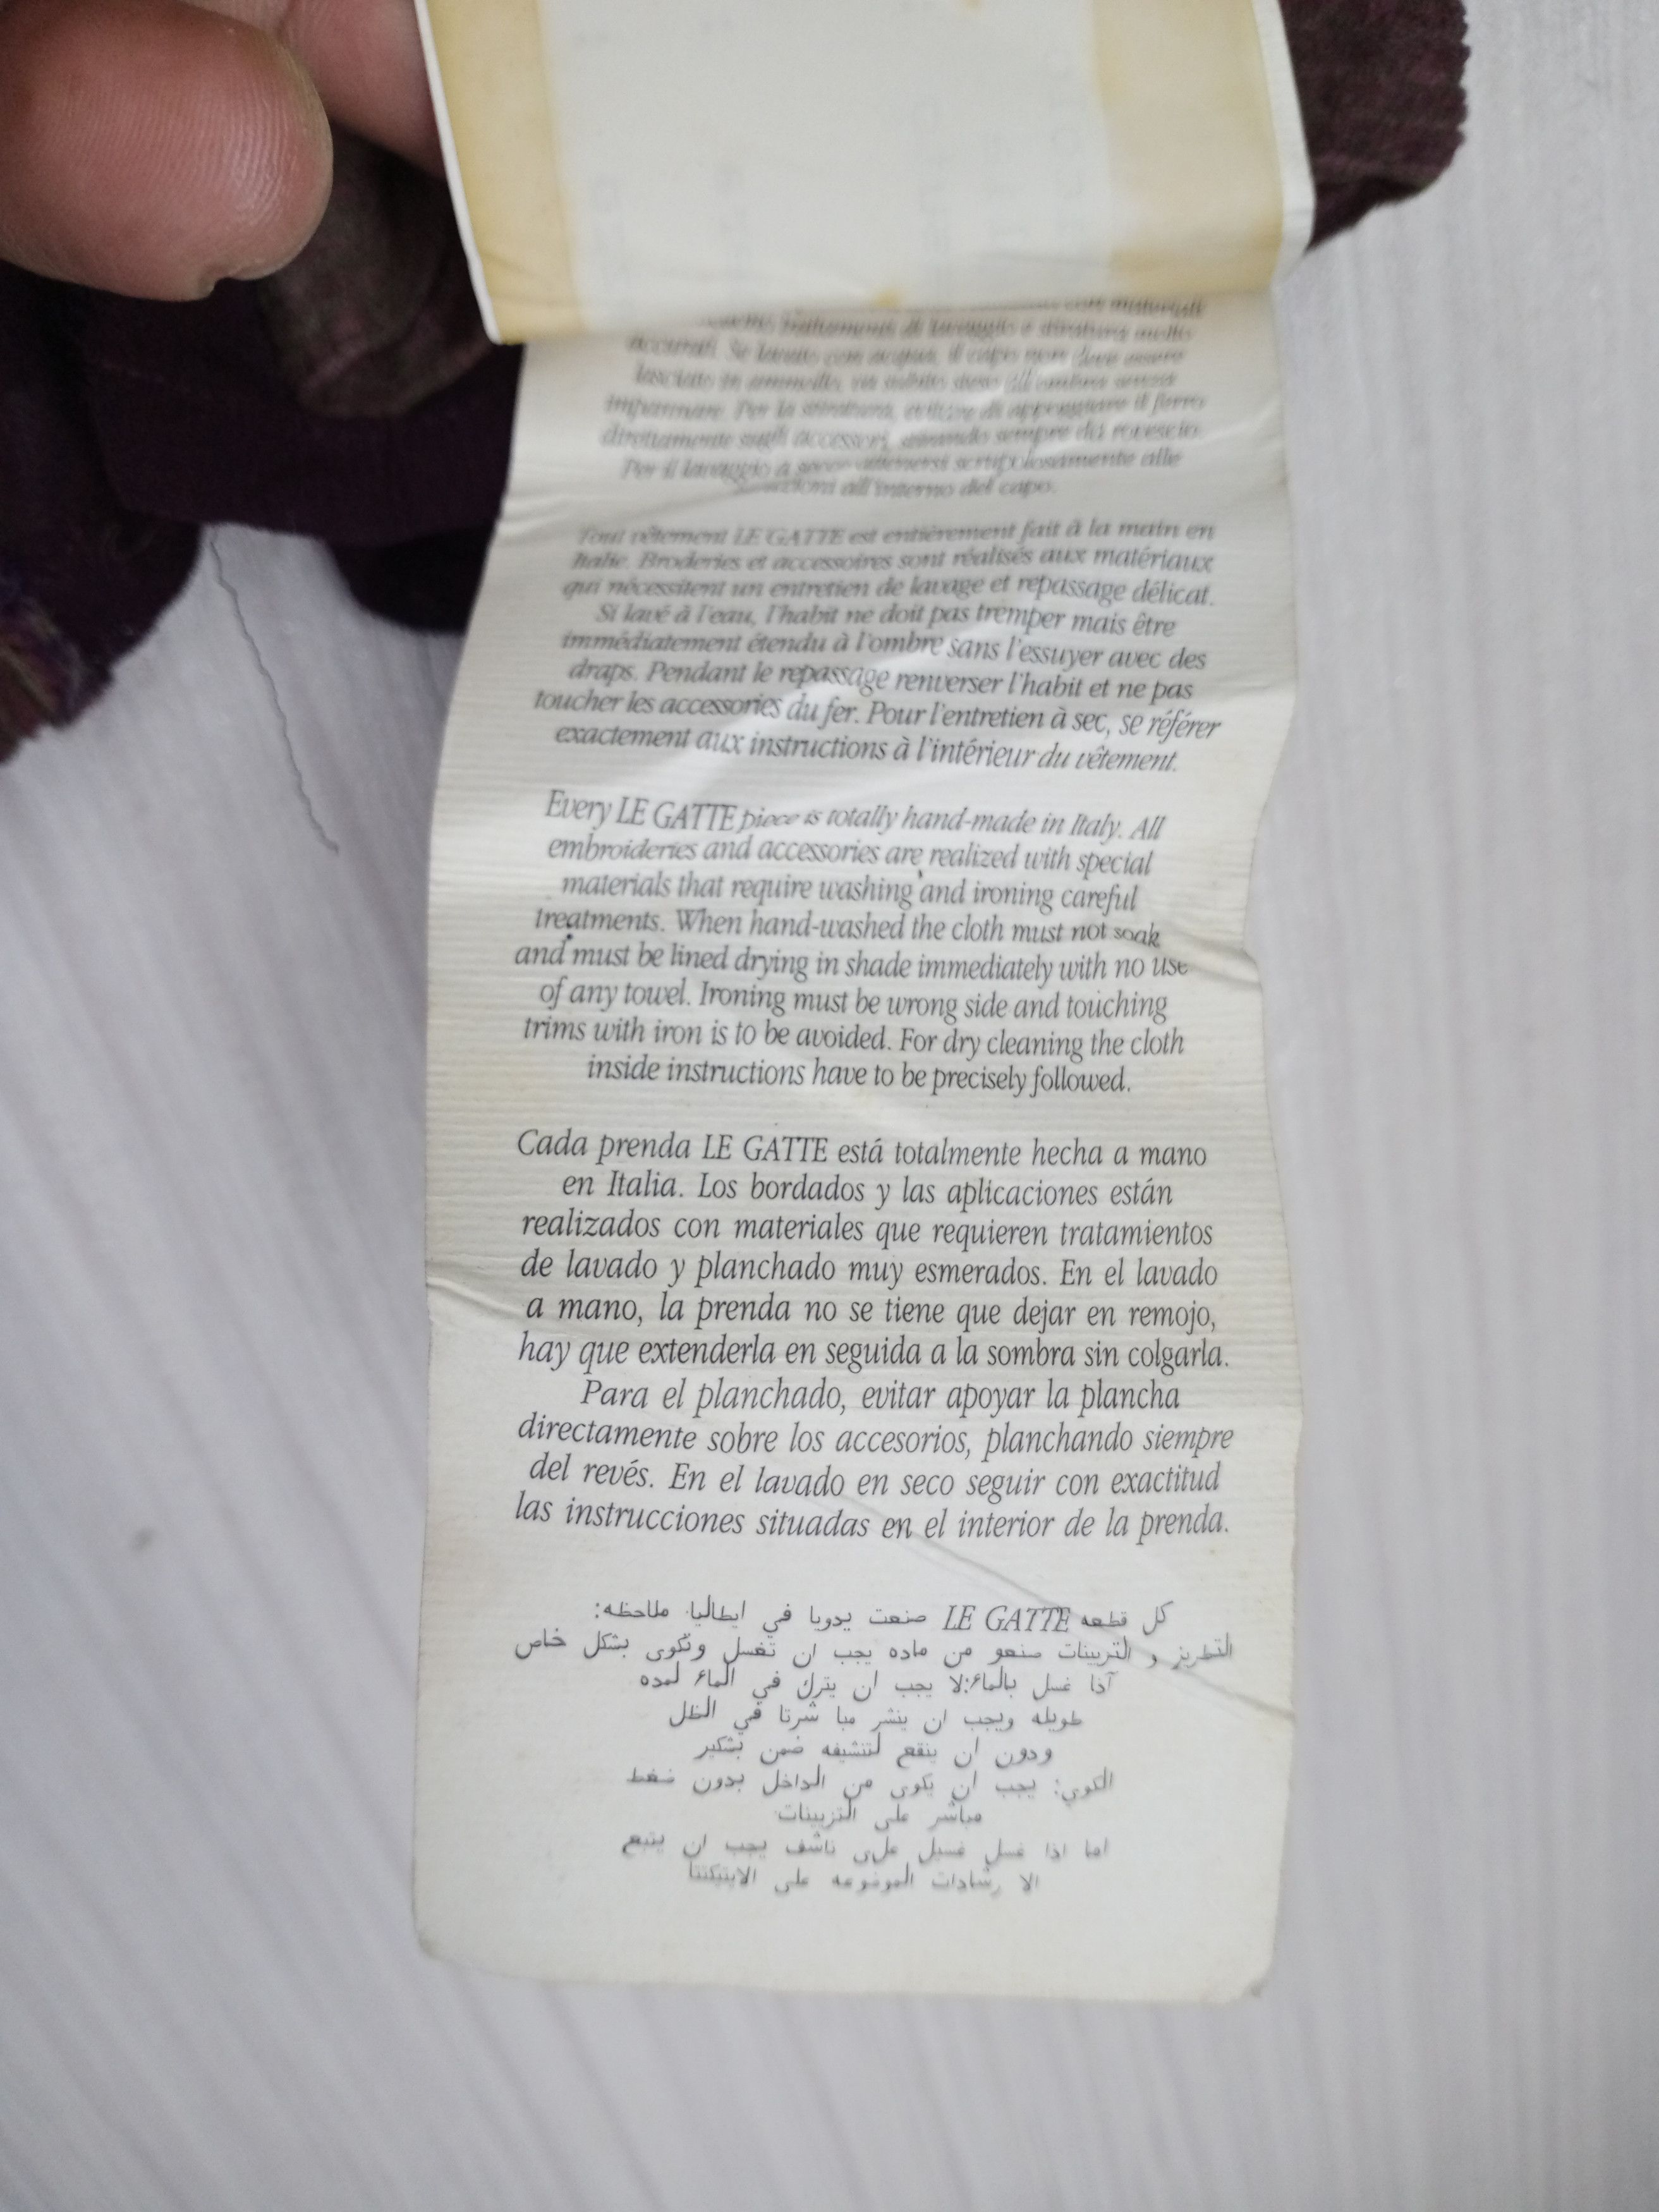 con materiali
trattamenti di lavaggio e stiratura molto
accurati. Se lavato con acqua, il capo non deve essere
lasciato in ammollo, va subito steso all'ombra senza
impannare. Per la stiratura, evitare di appoggiare il ferro
direttamente sugli accessori, stirando sempre da rovescio.
Per il lavaggio a secco attenersi scrupolosamente alle
all'interno del capo.
Tout vêtement LE GATTE est entièrement fait à la main en
Italie. Broderies et accessoires sont réalisés aux matériaux
qui nécessitent un entretien de lavage et repassage délicat.
Si lavé à l'eau, l'habit ne doit pas tremper mais être
immédiatement étendu à l'ombre sans l'essuyer avec des
draps. Pendant le repassage renverser l'habit et ne pas
toucher les accessories du fer. Pour l'entretien à sec, se référer
exactement aux instructions à l'intérieur du vêtement.
Every LE GATTE piece is totally hand-made in Italy. All
embroideries and accessories are realized with special
materials that require washing and ironing careful
treatments. When hand-washed the cloth must not soak
and must be lined drying in shade immediately with no use
of any towel. Ironing must be wrong side and touching
trims with iron is to be avoided. For dry cleaning the cloth
inside instructions have to be precisely followed.
Cada prenda LE GATTE está totalmente hecha a mano
en Italia. Los bordados y las aplicaciones están
realizados con materiales que requieren tratamientos
de lavado y planchado muy esmerados. En el lavado
a mano, la prenda no se tiene que dejar en remojo,
hay que extenderla en seguida a la sombra sin colgarla.
Para el planchado, evitar apoyar la plancha
directamente sobre los accesorios, planchando siempre
del revés. En el lavado en seco seguir con exactitud
las instrucciones situadas en el interior de la prenda.
كل قطعه LE GATTE صنعت يدويا في ايطاليا. ملاحظه:
التطريز و التزيينات صنعو من ماده يجب ان تغسل وتكوى بشكل خاص
آذا غسل بالماء:لا يجب ان يترك في الماء لمده
طويله ويجب ان ينشر مبا شرتا في الظل
ودون ان ينقع لتنشيفه ضمن بشكير
الكوي: يجب ان يكوى من الداخل بدون ضغط
مباشر على التزيينات
اما اذا غسل غسيل على ناشف يجب ان يتبع
الا رشادات الموضوعه على الايتيكتتا